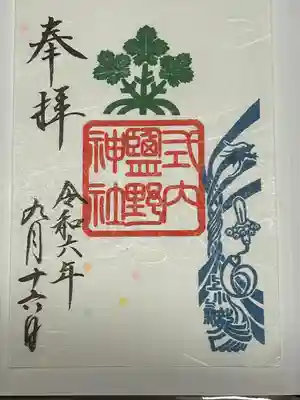 奉拝
式内
鹽野
神社
令和六年
九月十六日